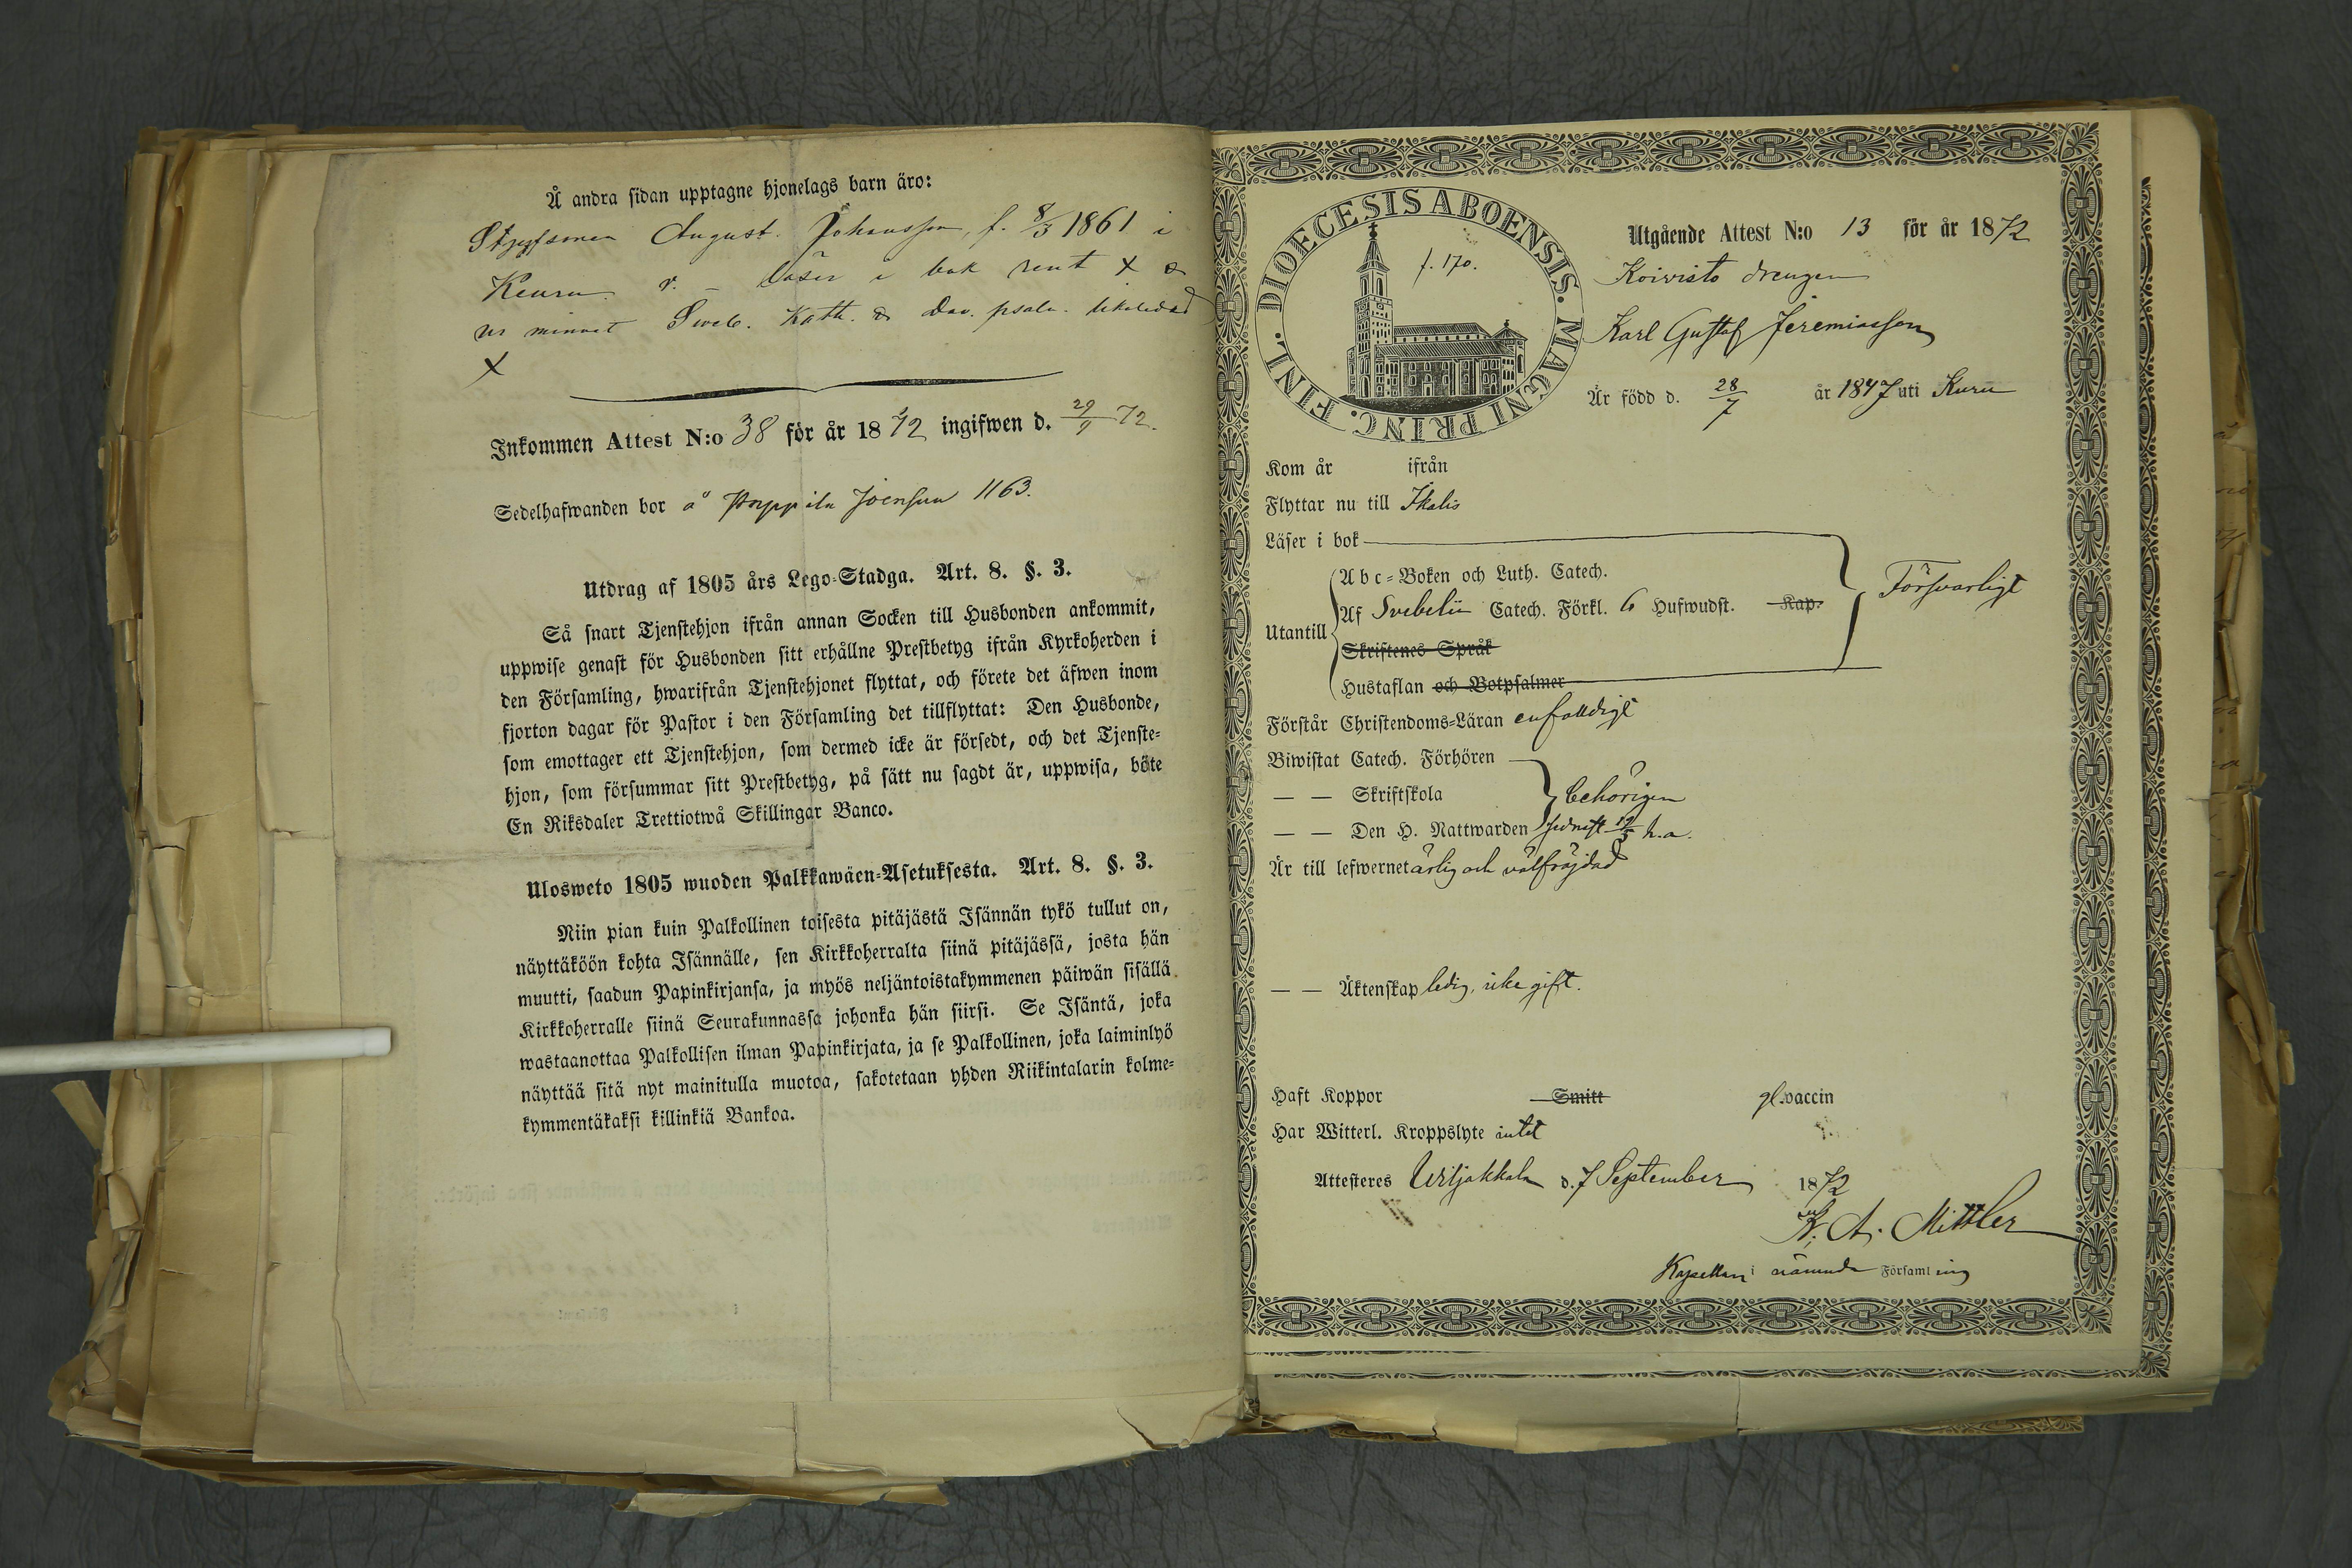 Å andra sidan upptagne hjonelags barn äro:
Styfsonen August Johansson, f. 8/3 1861 i
Keuru. v. – läser i bok rent x &
ur minnet Sveb. Kath. & Dav. psalm. likaledes
x
Inkommen Attest N:o 38 för år 1872 ingifwen d. 29/9 72.
Sedelhafwanden bor å Joensuu 1163.
Utdrag af 1805 års Lego-Stadga. Art. 8. §. 3.
Så snart Tjenstehjon ifrån annan Socken till Husbonden ankommit,
uppwise genast för Husbonden sitt erhållne Prestbetyg ifrån Kyrkoherden i
den Församling, hwarifrån Tjenstehjonet flyttat, och förete det äfwen inom
fjorton dagar för Pastor i den Församling det tillflyttat: Den Husbonde,
som emottager ett Tjenstehjon, som dermed icke är försedt, och det Tjenste-
hjon, som försummar sitt Prestbetyg, på sätt nu sagdt är, uppwisa, böte
En Riksdaler Trettiotwå Skillingar Banco.
Ulosweto 1805 wuoden Palkkawäen-Asetuksesta. Art. 8. §. 3.
Niin pian kuin Palkollinen toisesta pitäjästä Isännän tykö tullut on,
näyttäköön kohta Isännälle, sen Kirkkoherralta siinä pitäjässä, josta hän
muutti, saadun Papinkirjansa, ja myös neljäntoistakymmenen päiwän sisällä
Kirkkoherralle siinä Seurakunnassa johonka hän siirsi. Se Isäntä, joka
wastaanottaa Palkollisen ilman Papinkirjata, ja se Palkollinen, joka laiminlyö
näyttää sitä nyt mainitulla muotoa, sakotetaan yhden Riikintalarin kolme-
kymmentäkaksi killinkiä Bankoa.
DIOECESIS ABOENSIS. MAGNI PRINC. FINL.
f. 170.
Utgående Attest N:o 13 för år 1872
Koivisto drengen
Karl Gustaf Jeremiasson
Är född d. 28/7 år 1847 uti Kuru
Kom år ifrån
Flyttar nu till Ikalis
Läser i bok
Utantill
Abc-Boken och Luth. Catech.
Af Svebelii Catech. Förkl. 6 Hufwudst. Kap.
Försvarligt
Skriftenes Språk
Hustaflan och Botpsalmer
Förstår Christendoms-Läran enfaldigt
Biwistat Catech. Förhören
— — Skriftskola behörigen
— — Den H. Nattwarden sednast 12/5 h.a.
Är till lefwernet ärlig och välfräjdad
— — Äktenskap ledig, icke gift.
Haft Koppor Smitt gl. vaccin
Har Witterl. Kroppslyte intet
Attesteres Wiljakkala d. 7 September 1872
K. A. Mittler
Kapellan i nämnde Församling